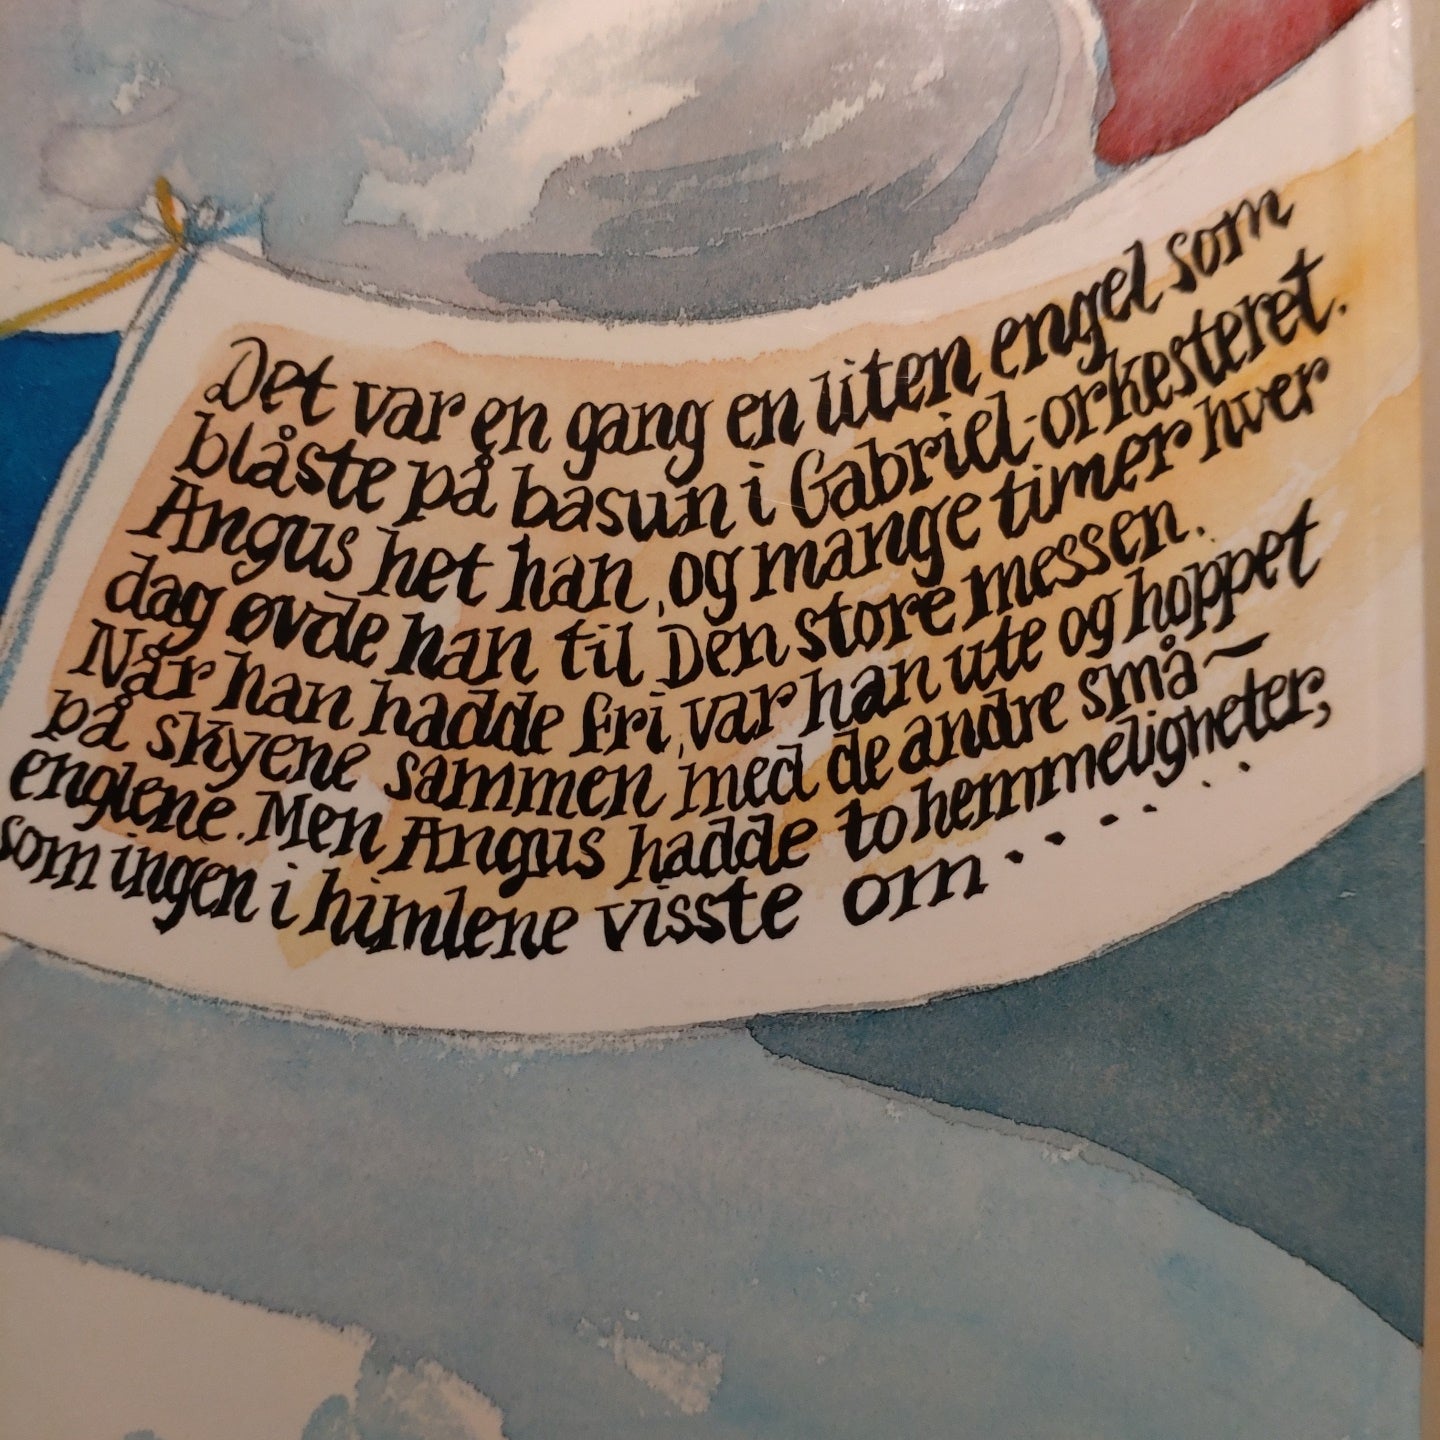 Det var en gang en liten engel som
blåste på basun i Gabriel-orkesteret.
Angus het han, og mange timer hver
dag øvde han til Den store messen.
Når han hadde fri, var han ute og hoppet
på skyene sammen med de andre små-
englene. Men Angus hadde to hemmeligheter,
som ingen i himlene visste om........